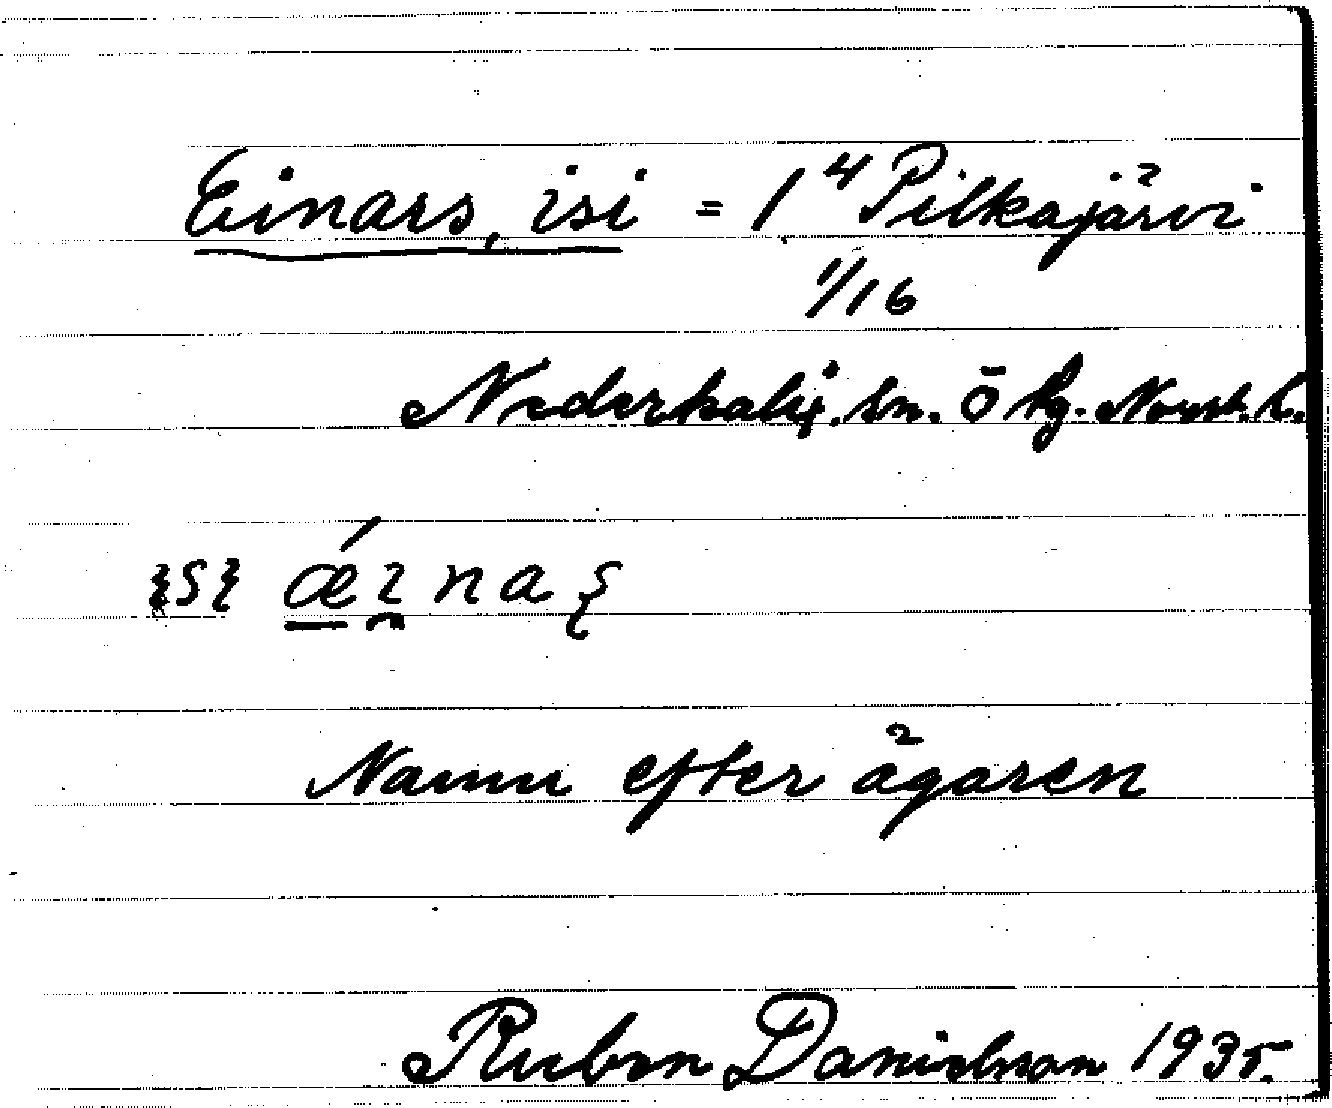 Einars, isi = 1⁴ Pilkajärvi
1/16
Nederkalix sn. Ö hg. Norrb. l.
{S} ǽınaς
Namn efter ägaren
Ruben Danielsson 1935.